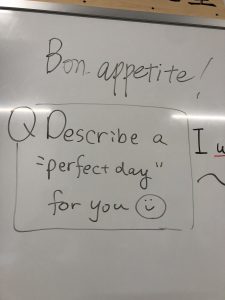 Bon appetite!
Q Describe a
"perfect day"
for you
I